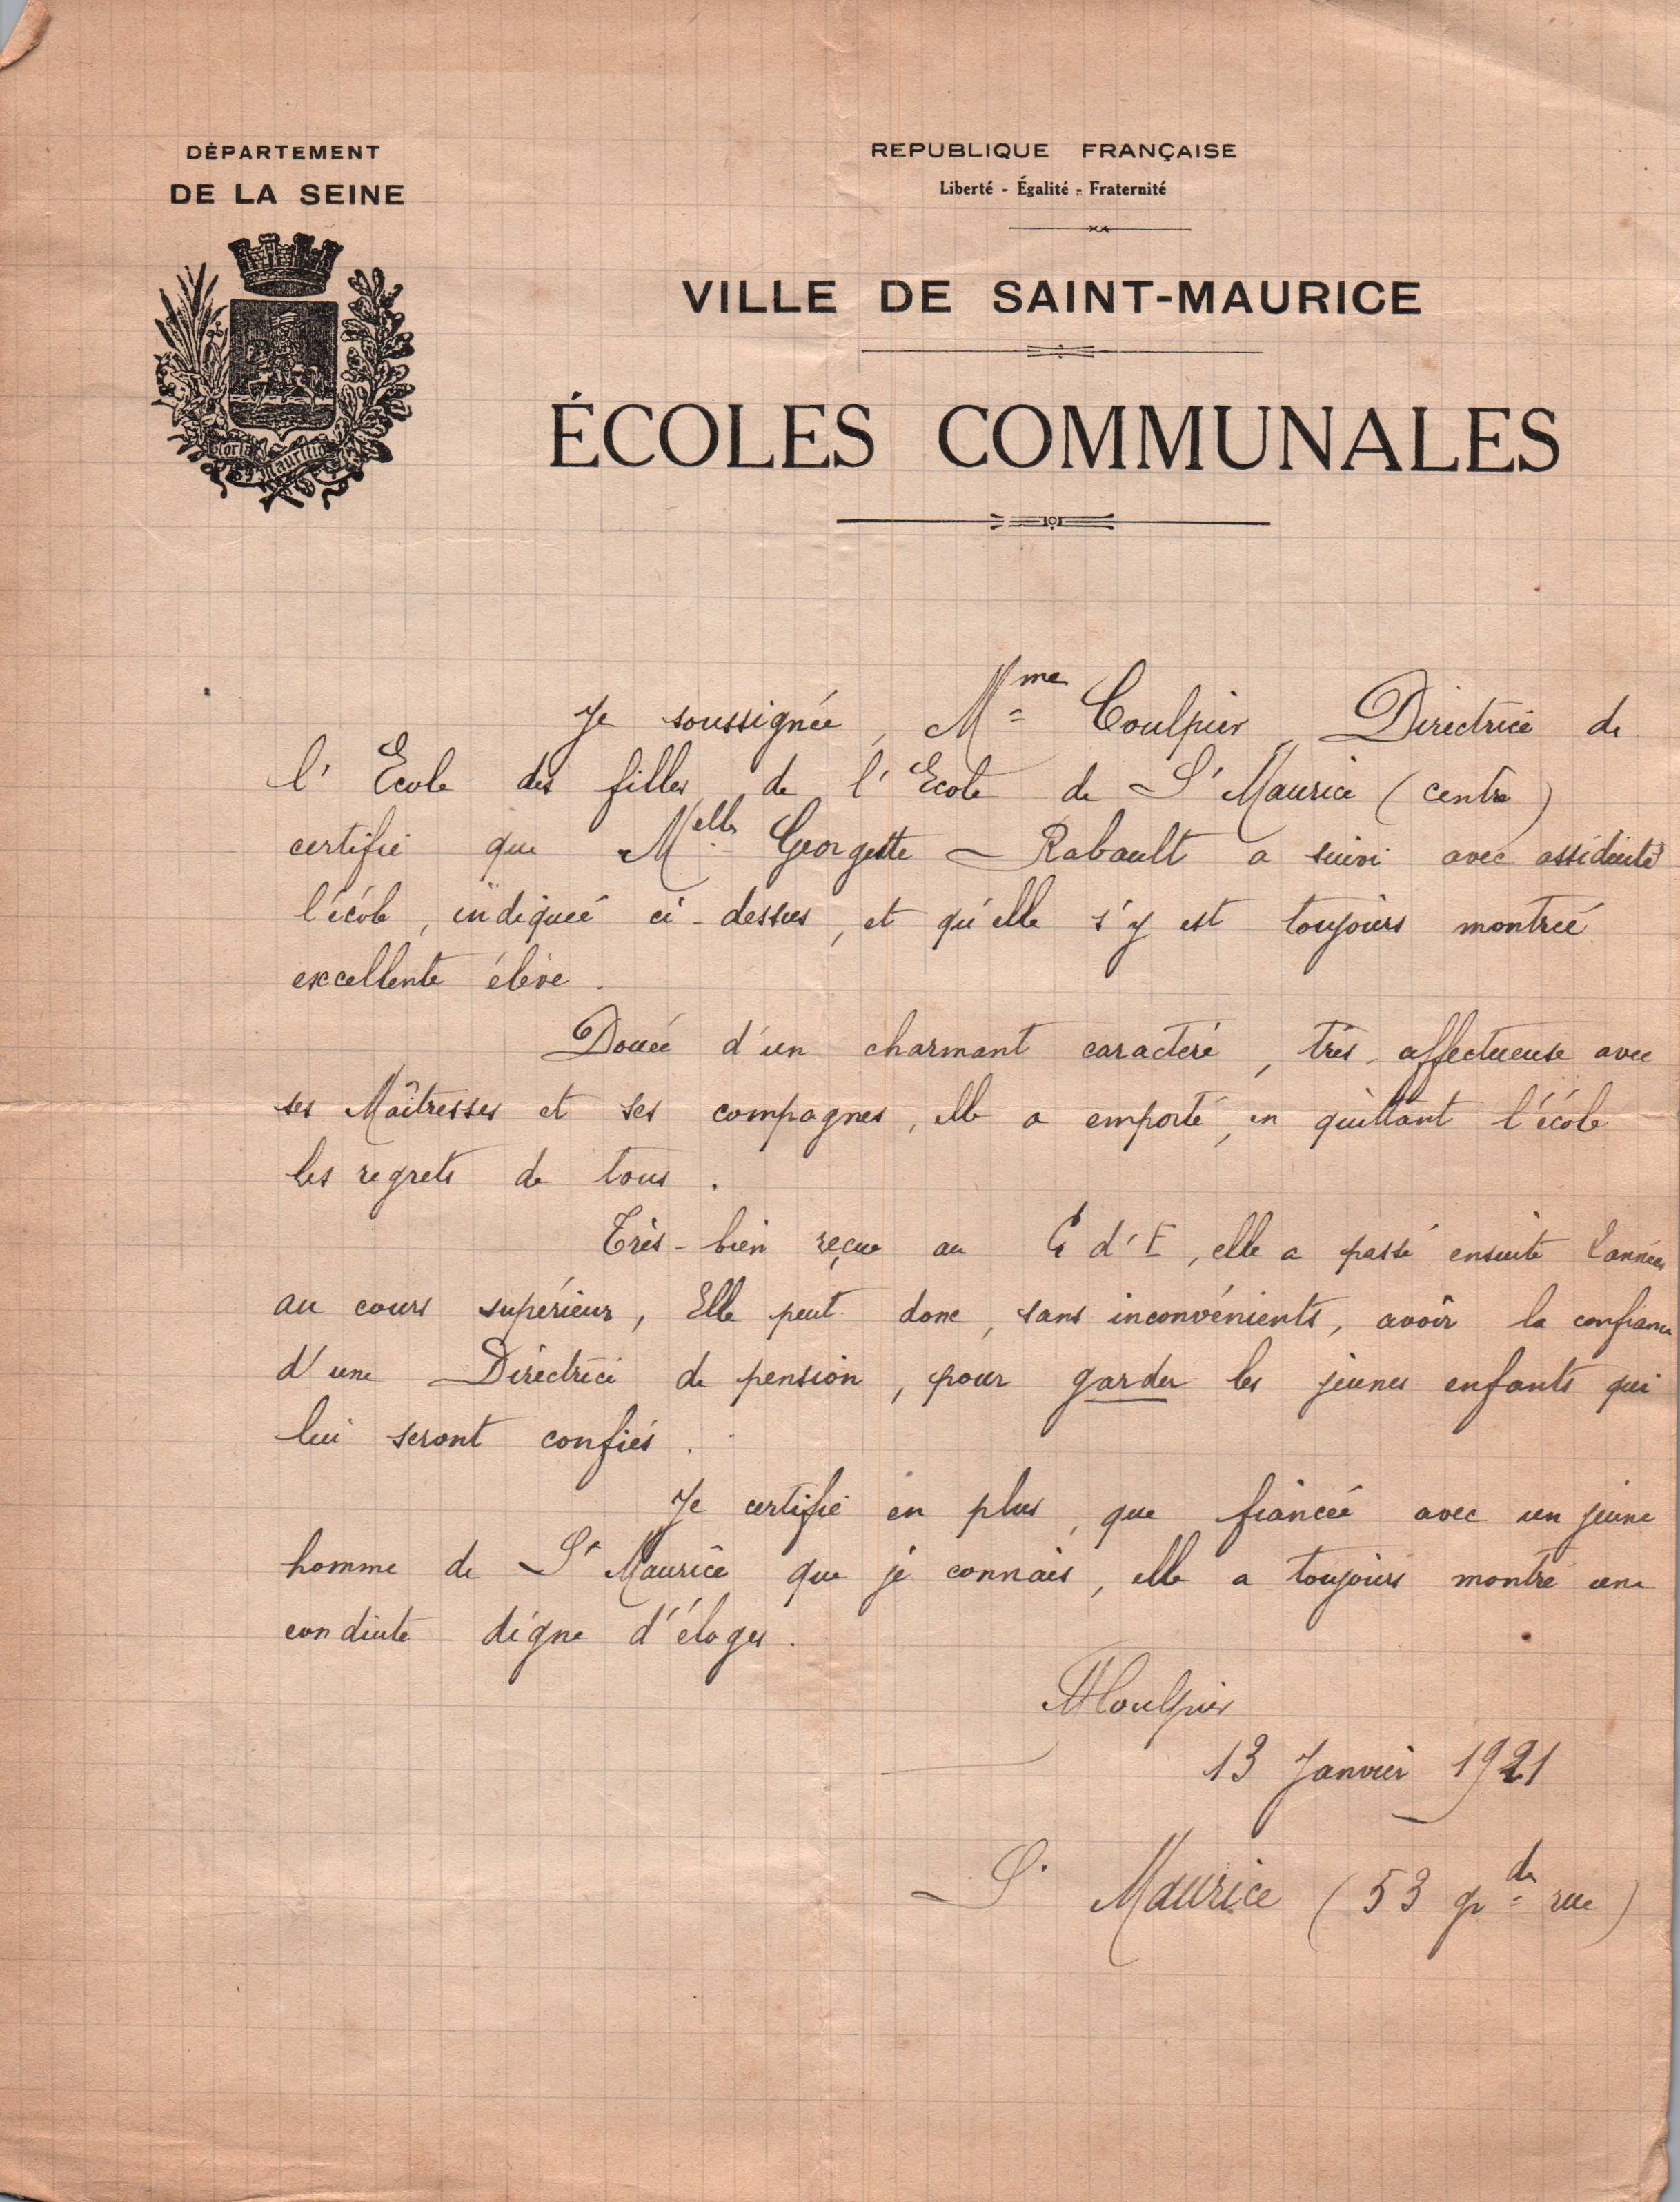 DÉPARTEMENT
DE LA SEINE
Gloria Mauritio
REPUBLIQUE FRANÇAISE
Liberté - Égalité - Fraternité
VILLE DE SAINT-MAURICE
ÉCOLES COMMUNALES
Je soussignée, Mme Coulpier, Directrice de
l'Ecole des filles de l'Ecole de St Maurice (centre)
certifie que Melle Georgette Rabault a suivi avec assiduité
l'école, indiquée ci-dessus, et qu'elle s'y est toujours montrée
excellente élève.
Douée d'un charmant caractère, très affectueuse avec
ses Maîtresses et ses compagnes, elle a emporté, en quittant l'école
les regrets de tous.
Très-bien reçue au C d'E, elle a passé ensuite 2 années
au cours supérieur, Elle peut donc, sans inconvénients, avoir la confiance
d'une Directrice de pension, pour garder les jeunes enfants qui
lui seront confiés.
Je certifie en plus, que fiancée avec un jeune
homme de St Maurice que je connais, elle a toujours montré une
conduite digne d'éloges.
Coulpier
13 Janvier 1921
St Maurice (53 gr de rue)